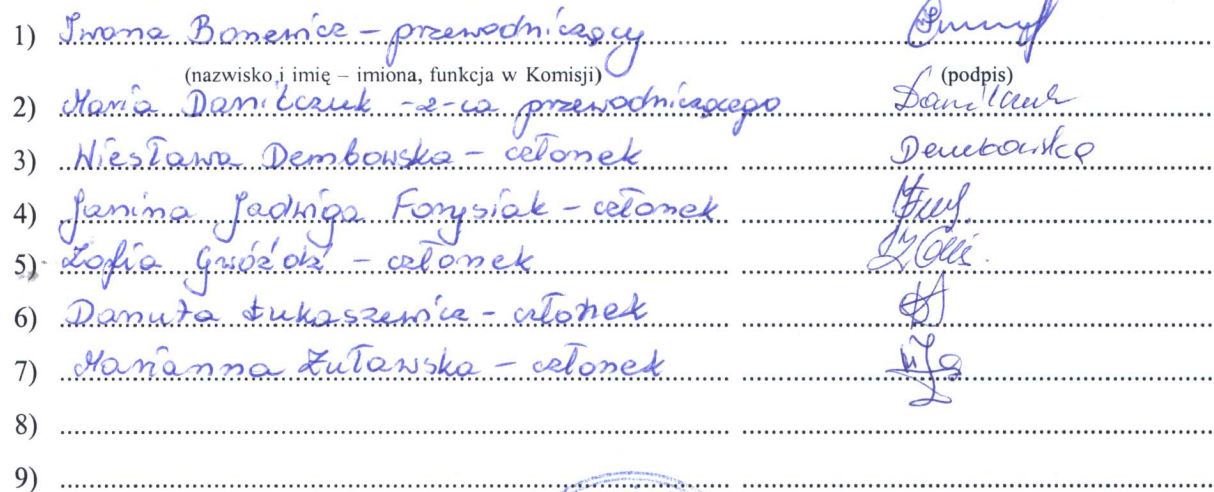 1) Iwona Bonewicz – przewodniczący
(nazwisko i imię – imiona, funkcja w Komisji) (podpis)
2) Maria Daniłczuk – z-ca przewodniczącego Daniłczuk
3) Wiesława Dembowska – członek Dembowska
4) Janina Jadwiga Forysiak – członek
5) Zofia Gwóźdź – członek
6) Danuta Łukaszewicz – członek
7) Marianna Żuławska – członek
8)
9)